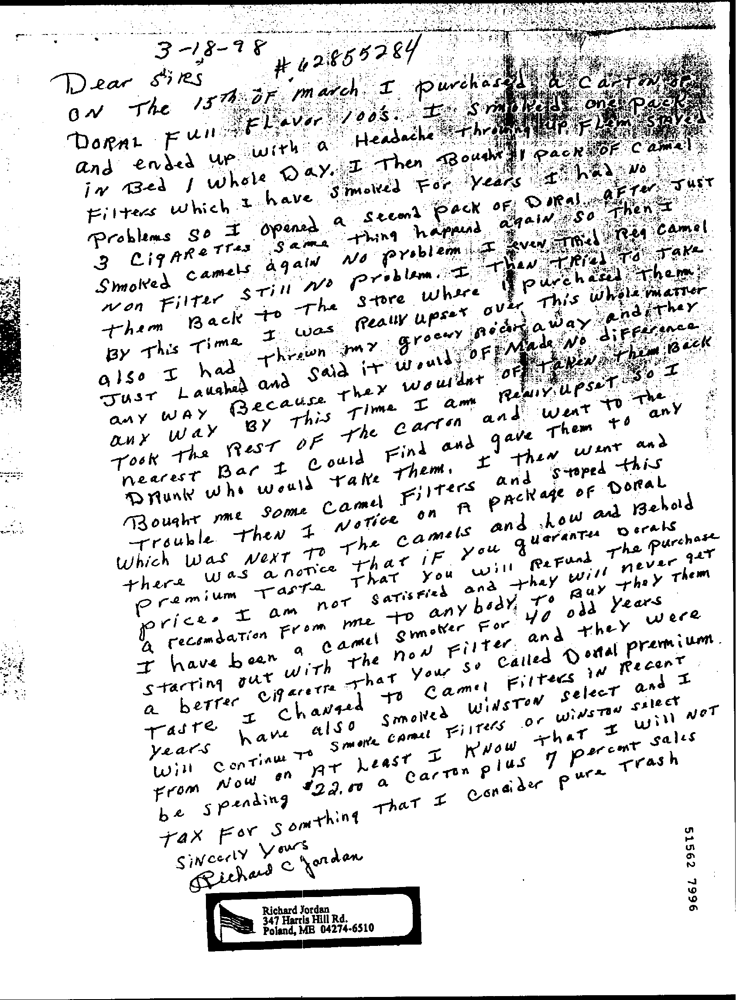 3-18-98
# 62855284
Dear Sirs
ON The 15Th OF march I purchased a CarTon OF
DORAL FUll FLavor 100s. I Smoked one Pack
and ended up with a Headache Throwing up Flem STayed
in Bed 1 whole Day. I Then Bought 1 Pack OF Camel
Filters which I have smoked For years I had NO
Problems so I opened a second pack of DoRal after Just
3 CigAReTTes same thing happend again so Then I
Smoked camels again No problem I even Tried Reg Camel
Non Filter STill No Problem. I Then TRied To Take
them Back to The Store where I purchased Them
By This Time I was Really upset over This whole matter
also I had Thrown my grocery away and they
Just Laughed and Said it would OF Made No difference
any WAY Because They wouldnt OF Taken them Back
any Way By This Time I am Really upset so I
Took the Rest OF The Carton and went To The
nearest Bar I could Find and gave Them to any
DRunk Who would take Them. I Then went and
Bought me some Camel Filters and stoped this
Trouble Then I Notice on A PAckage OF DORAL
Which Was NexT To The Camels and Low and Behold
there was a notice that iF you guarantee Dorals
Premium TasTe That you will ReFund The Purchase
price. I am not Satisfied and they will never get
a recomdation From me To anybody To Buy They Them
I have been a Camel Smoker For 40 odd years
starting out with The Non Filter and they were
a better Cigarette That Your So Called Doral premium
Taste I Changed to Camel Filters in Recent
years have also Smoked WINSTON Select and I
Will Continue To Smoke Camel Filters or WINSTON select
From Now on AT Least I KNow That I will NoT
be Spending $22.00 a Carton plus 7 percent sales
TAX For Somthing That I Conaider pure Trash
Sincerly Yours
Richard C Jordan
Richard Jordan
347 Harris Hill Rd.
Poland, ME 04274-6510
51562 7996